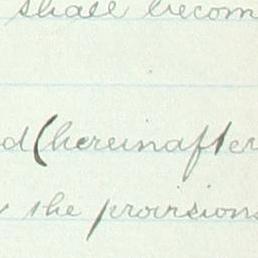 shall becom
d (hereinafter
the provisions